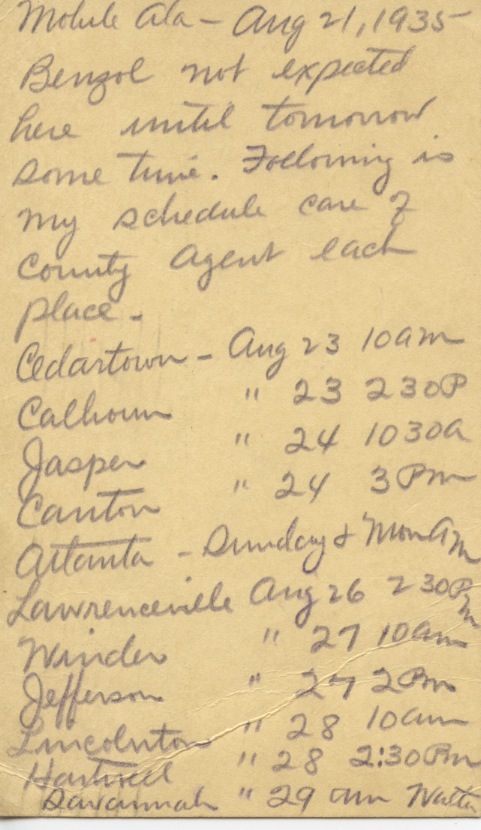 Mobile Ala - Aug 21, 1935
Benzol not expected
here until tomorrow
some time. Following is
my schedule care of
County Agent each
place -
Cedartown - Aug 23 10am
Calhoun " 23 230P
Jasper " 24 1030a
Canton " 24 3Pm
Atlanta - Sunday & Mon am
Lawrenceville Aug 26 230Pm
Winder " 27 10am
Jefferson " 27 2Pm
Lincolnton " 28 10am
Hartwell " 28 2:30Pm
Savannah " 29 am